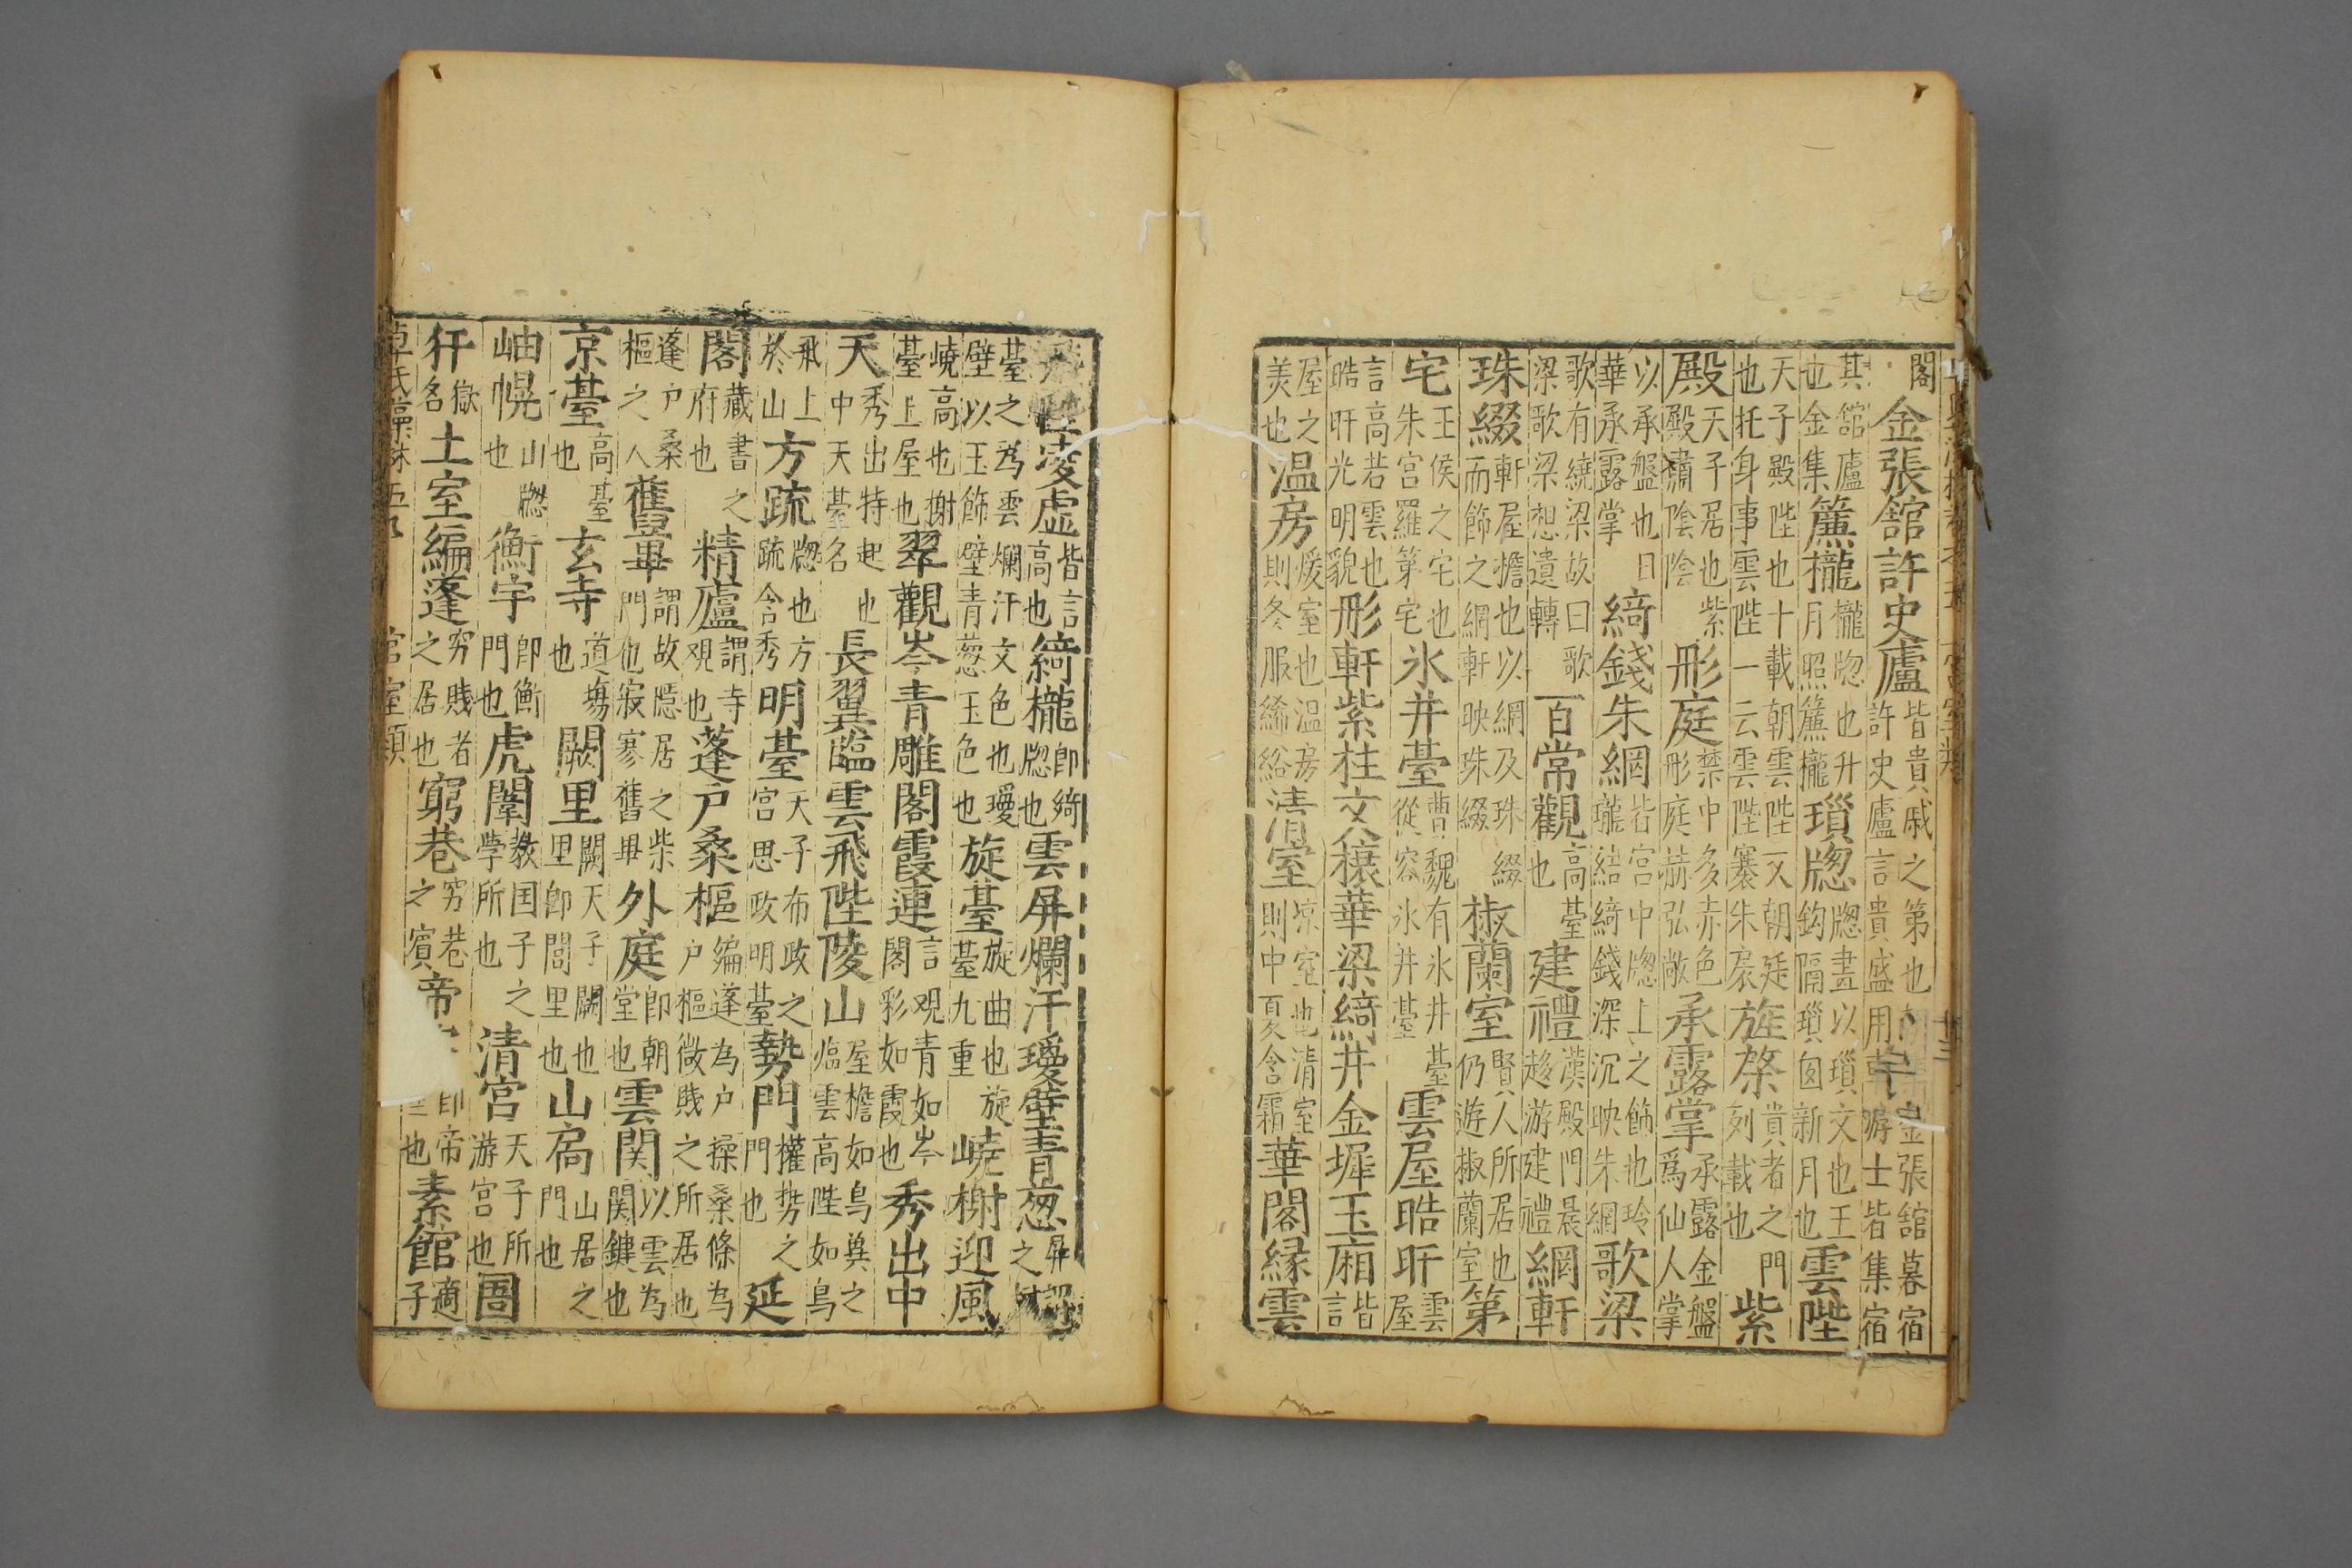 閣金張舘許史廬皆貴戚之第也金張舘暮宿許史廬言貴盛用游士皆集宿
其舘廬也金集簾櫳櫳牎也升月照簾櫳瑣牎牎畫以瑣文也王鈎隔瑣囱新月也雲陛
天子殿陛也十載朝雲陛又朝廷也托身事雲陛一云雲陛褰朱扆旌棨貴者之門列戟也紫
殿天子居也紫殿肅陰陰彤庭禁中多赤色彤庭赫弘敞承露掌承露金盤爲仙人掌
以承盤也日華承露掌綺錢朱網皆宮中牎上之飾也玲瓏結綺錢深沉映朱網歌梁
歌有繞梁故曰歌梁歌梁想遺轉百常觀高臺也建禮漢殿門晨趍游建禮網軒
珠綴軒屋擔也以網及珠綴而飾之網軒映珠綴椒蘭室賢人所居也仍遊椒蘭室第
宅王侯之宅也朱宮羅第宅氷井臺曹魏有氷井臺從容氷井臺雲屋晧旰雲屋
言高若雲也晧旰光明貌彤軒紫柱文穰華梁綺井金墀玉廂皆言
屋之美也温房煖室也温房則冬服絺綌清室凉室也清室則中夏含霜華閣縁雲
陛凌虚皆言高也綺櫳即綺牎也雲屏爛汗瓊壁青葱屏之
臺之爲雲爛汗文色也瓊壁以玉飾壁青葱玉色也旋臺旋曲也旋臺九重嶢榭迎風
嶢高也榭臺上屋也翠觀岑青雕閣霞連言观青如岑閣彩如霞也秀出中
天秀出特起也中天臺名長翼臨雲飛陛陵山屋擔如鳥奐之臨雲高陛如鳥
飛上於山方疏牎也方疏含秀明臺天子布政之宮思政明臺勢門權势之門也延
閣藏書之府也精廬謂寺观也蓬户桑樞編蓬為户操桑條為户樞微賎之所居也
蓬户桑樞之人舊畢謂故隠居之柴門也寂寥舊畢外庭即朝堂也雲関以雲為関鍵也
京臺高臺也玄寺道塲也闕里闕天子闕也里即閭里也山扄山居之門也
岫幌山牎也衡宇即衡門也虎闈教国子之學所也清宮天子所游宮也圄
犴獄名土室編蓬穷賎者之居也窮巷穷巷之賓帝即帝也素館適子
卓氏藻林 五 宮室類